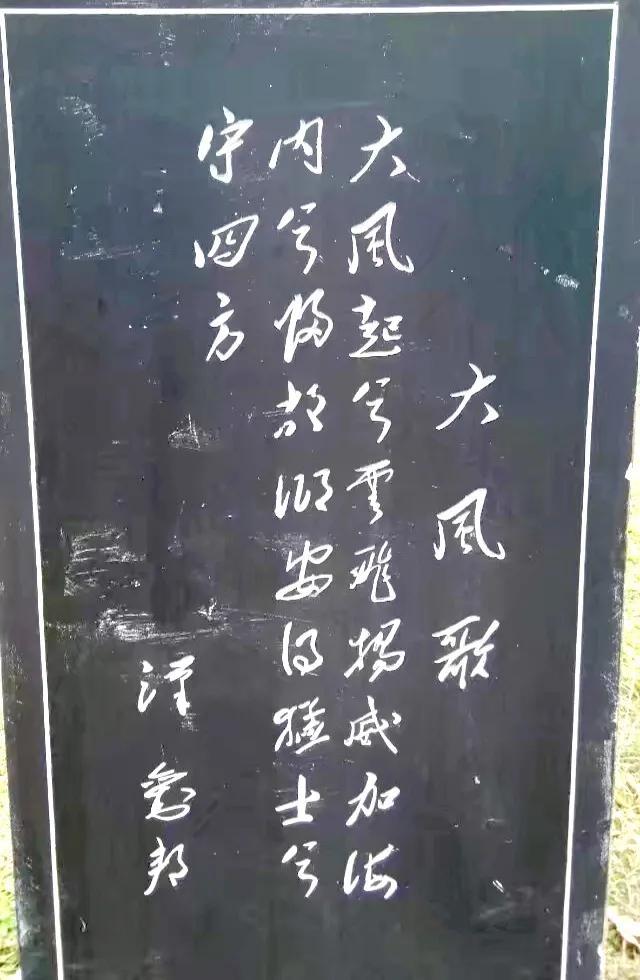 大風歌
大風起兮雲飛揚威加海
内兮歸故鄉安得猛士兮
守四方
漢劉邦